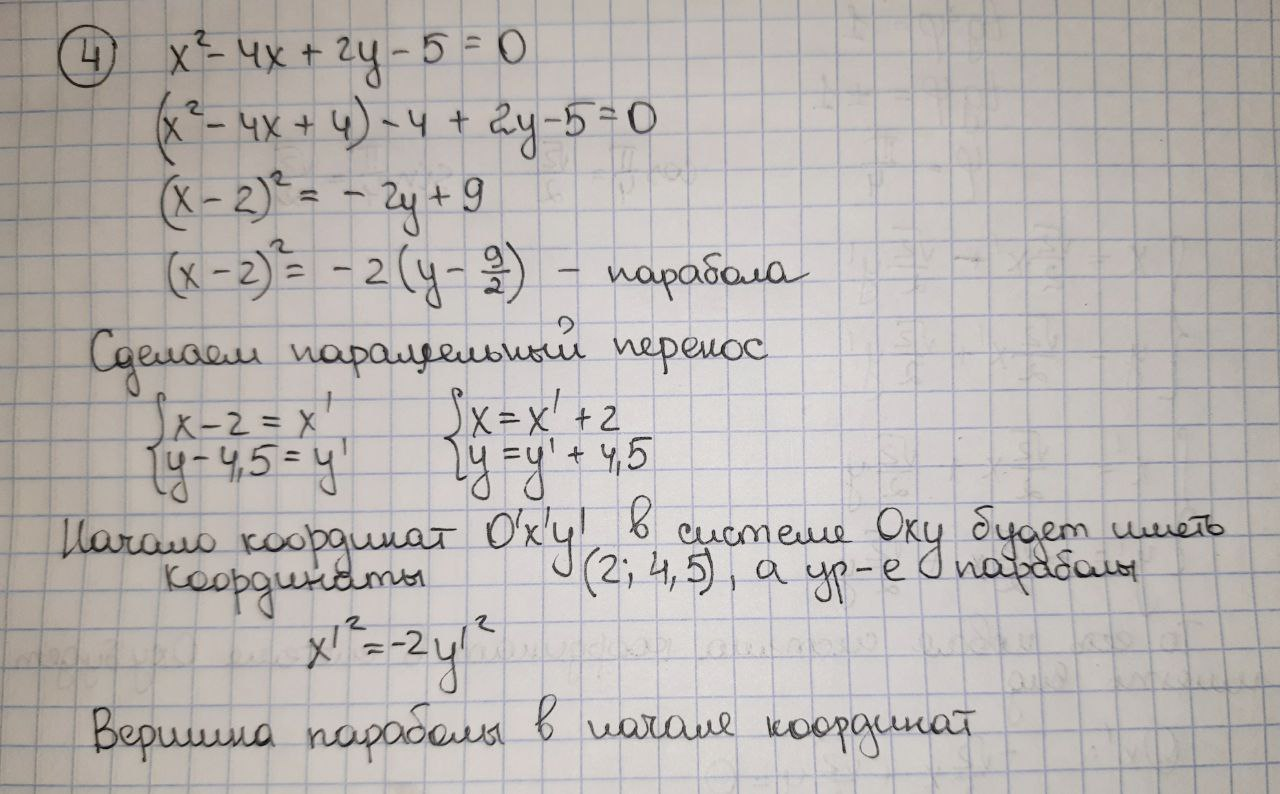 ④ x² - 4x + 2y - 5 = 0
(x² - 4x + 4) - 4 + 2y - 5 = 0
(x - 2)² = - 2y + 9
(x - 2)² = - 2 (y - 9/2) - парабола
Сделаем параллельный перенос
{x - 2 = x' {x = x' + 2
{y - 4,5 = y' {y = y' + 4,5
Начало координат O'x'y' в системе Oxy будет иметь
координаты (2; 4,5), а ур-е параболы
x'² = -2y'²
Вершина параболы в начале координат